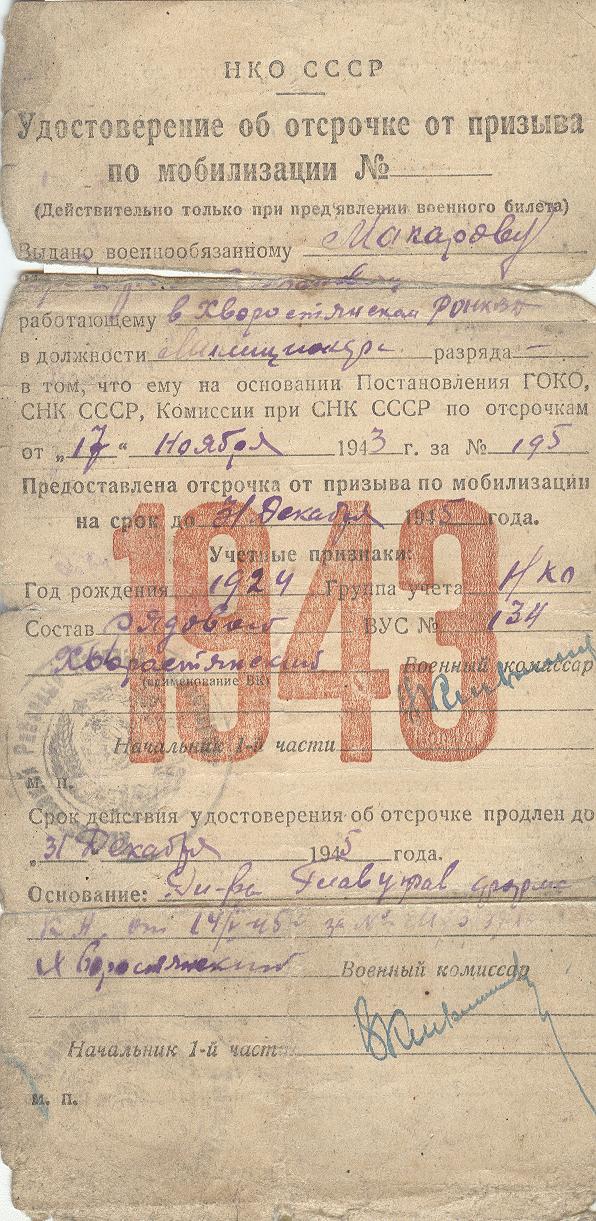 НКО СССР
Удостоверение об отсрочке от призыва
по мобилизации №
(Действительно только при пред'явлении военного билета)
Выдано военнообязанному Макарову
работающему в Хворостянском
в должности Милиционера разряда —
в том, что ему на основании Постановления ГОКО,
СНК СССР, Комиссии при СНК СССР по отсрочкам
от „17“ Ноября 1943 г. за № 195
Предоставлена отсрочка от призыва по мобилизации
на срок до 31 Декабря 1945 года.
1943
Учетные признаки:
Год рождения 1924 Группа учета НКО
Состав рядовой ВУС № 134
Хворостянский Военный комиссар
(наименование ВК)
Начальник 1-й части
м. п.
Срок действия удостоверения об отсрочке продлен до
„31 Декабря 1945 года.
Основание: Ди-ва Главупраформ
К.А. от 14/ 45 за №
Хворостянский Военный комиссар
Начальник 1-й части
м. п.